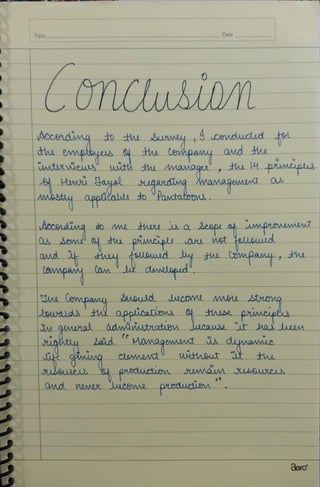 Topic
Date
Conclusion
According to the survey, I conducted for
the employees of the Company and the
interviews with the manager, the 14 principles
of Henri Fayol regarding management are
mostly applicable to Pantaloons.
According to me there is a scope of improvement
as some of the principle are not followed
and if they followed by the company, the
company can be developed.
The Company should become more strong
towards the applications of these principles
In general administration because it has been
rightly said "Management is dynamic
life giving element without it the
resources of production remain resources
and never become production".
aero